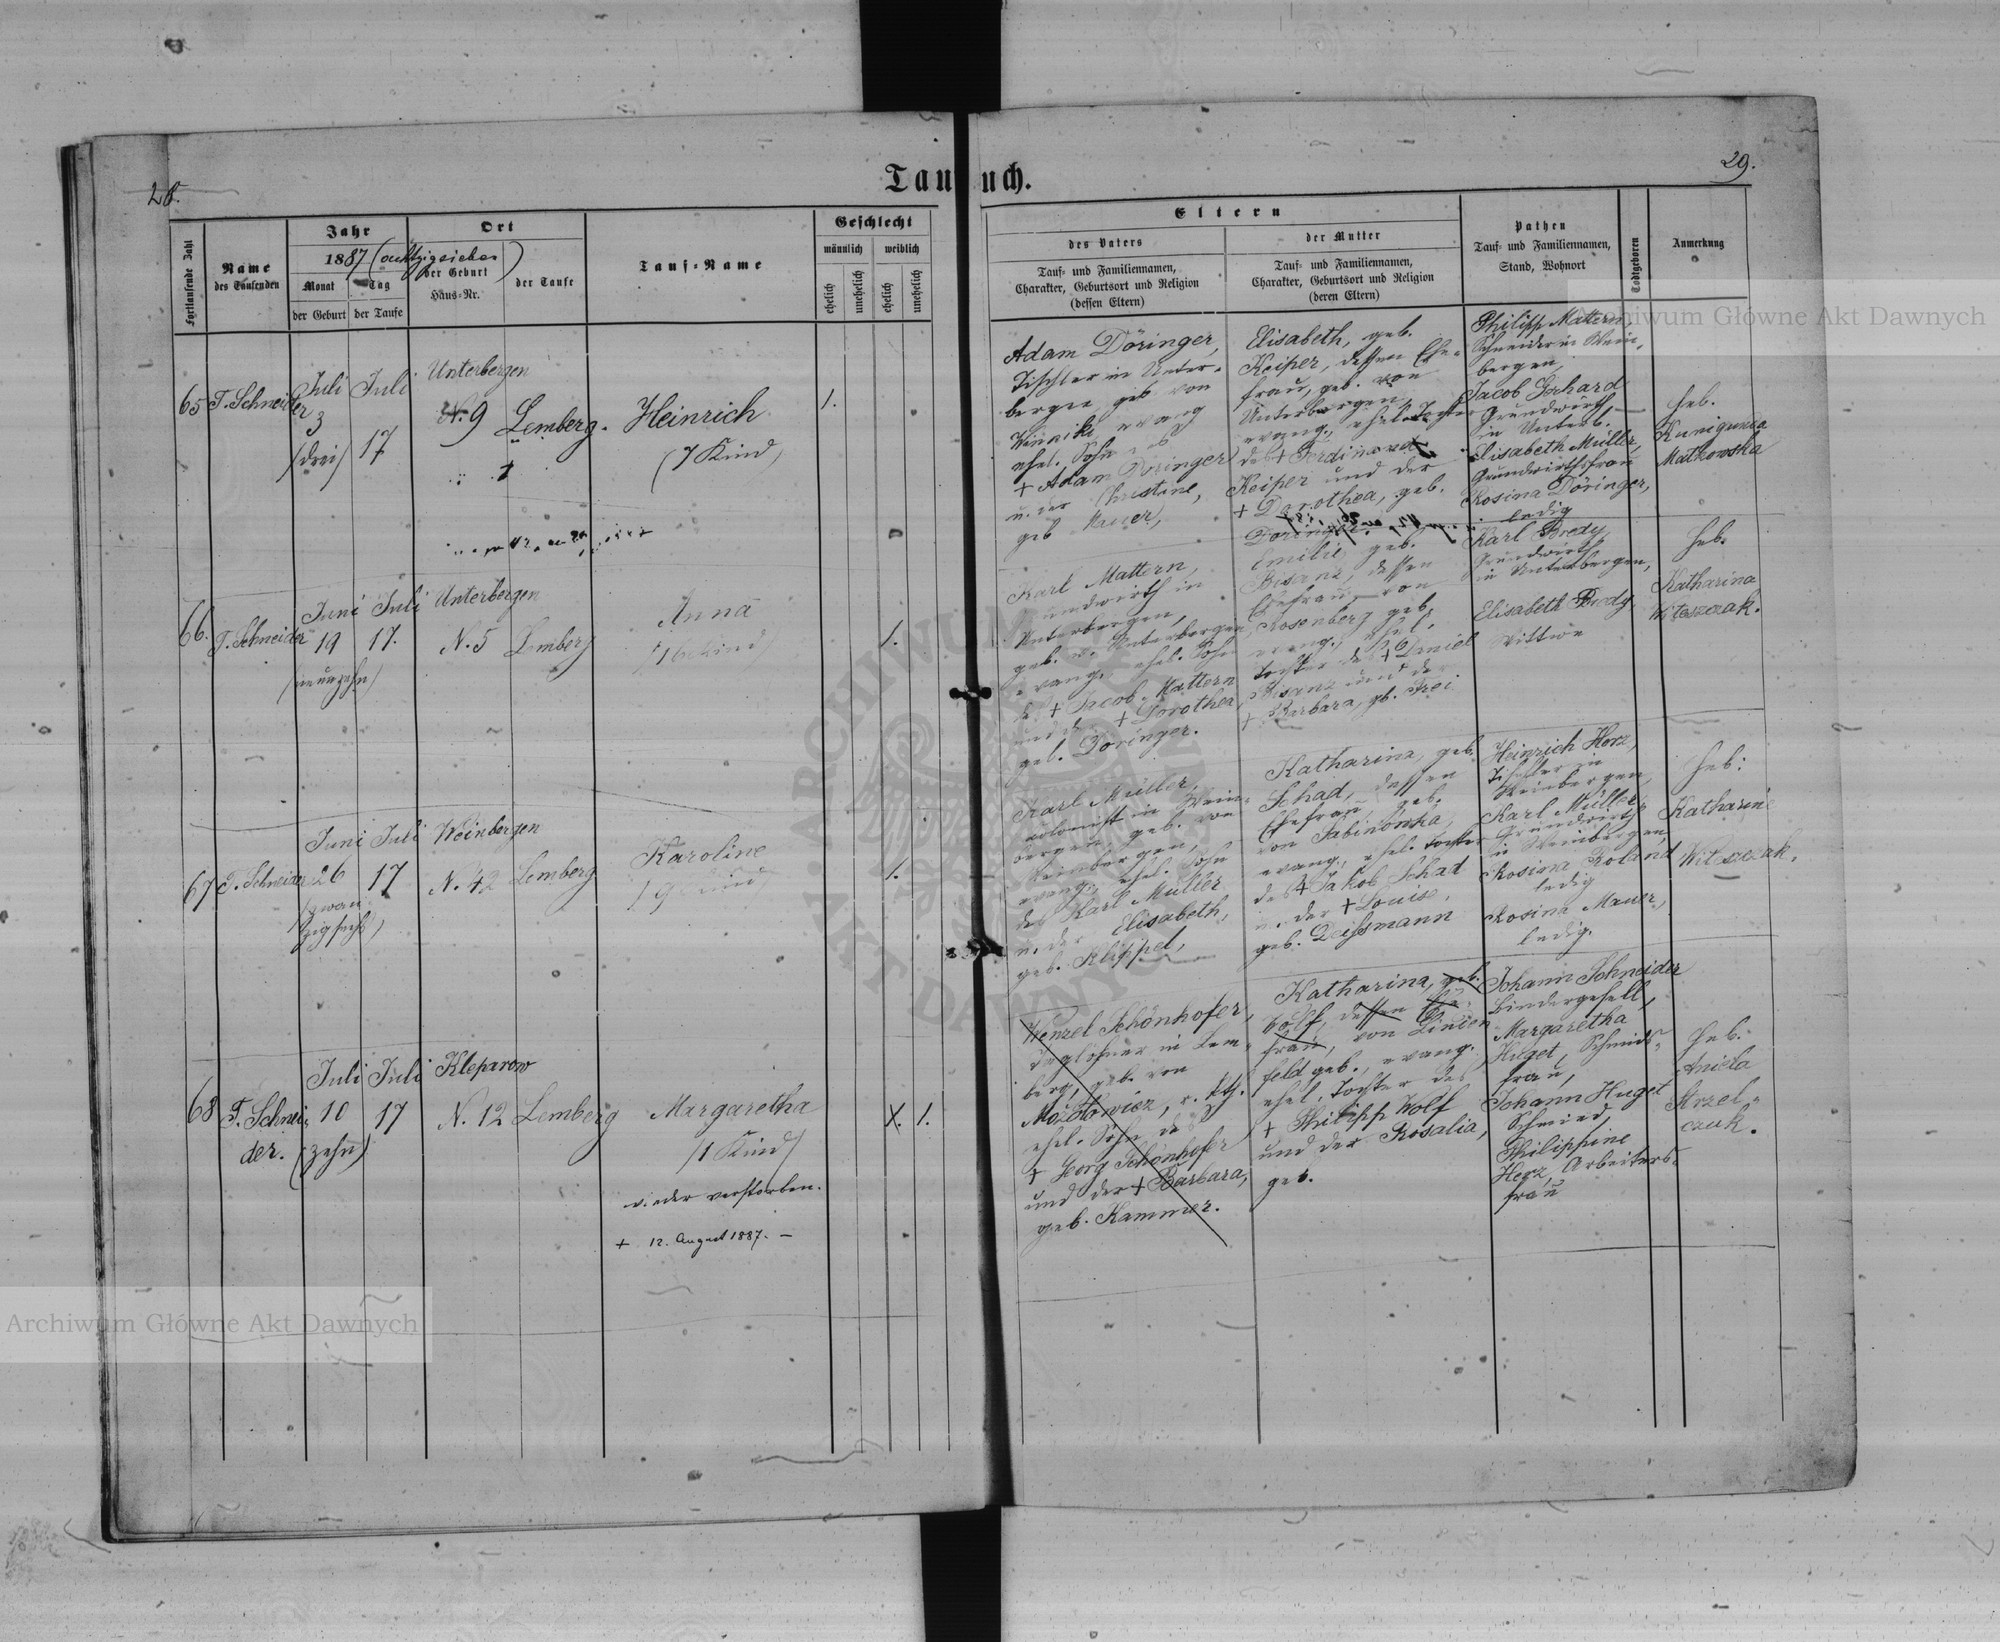 28.
Taufbuch.
29.
Fortlaufende Zahl
Name
des Taufenden
Jahr
1887 (achtzigsieben)
Monat
Tag
der Geburt
der Taufe
Ort
der Geburt
Haus-Nr.
der Taufe
Tauf-Name
Geschlecht
männlich
weiblich
ehelich
unehelich
ehelich
unehelich
Eltern
des Vaters
Tauf- und Familiennamen,
Charakter, Geburtsort und Religion
(dessen Eltern)
der Mutter
Tauf- und Familiennamen,
Charakter, Geburtsort und Religion
(deren Eltern)
Pathen
Tauf- und Familiennamen,
Stand, Wohnort
Todtgeboren
Anmerkung
65
T. Schneider
Juli
3
(drei)
Juli
17
Unterbergen
N. 9
Lemberg.
Heinrich
(7 Kind)
1.
Adam Döringer,
Tischler in Unter-
bergen geb von
Winniki evang
ehel. Sohn
+ Adam Döringer
u. der Christine,
geb Mauer,
Elisabeth, geb.
Keiper, dessen Ehe-
frau, geb. von
Unterbergen,
evang., ehel. Tochter
des + Ferdinand
Keiper und der
+ Dorothea, geb.
Döringer
Philipp Mattern,
Schneider in Wein-
bergen,
Jacob Gerhard
Grundwirth
in Unterb.
Elisabeth Müller,
Grundwirthsfrau
Rosina Döringer,
ledig
Heb.
Kunigunda
Matkowska
66.
T. Schneider
Juni
19
(neunzehn)
Juli
17.
Unterbergen
N. 5
Lemberg
Anna
1.
Karl Mattern,
Grundwirth in
Unterbergen,
geb. v. Unterbergen
evang. ehel. Sohn
des + Jacob Mattern
und der + Dorothea,
geb. Döringer.
Emilie, geb.
Bisanz, dessen
Ehefrau, von
Rosenberg geb,
evang., ehel.
Tochter des + Daniel
Bisanz und der
+ Barbara, gb. Frei
Karl Bredy
Grundwirth
in Unterbergen,
Elisabeth Bredy
Wittwe
Heb.
Katharina
Witoszczak.
67
T. Schneider
Juni
26
(zwan-
zigsechs)
Juli
17
Weinbergen
N. 42
Lemberg
Karoline
(9 Kind)
1.
Karl Müller,
Colonist in Wein-
bergen, geb. von
Weinbergen,
evang., ehel. Sohn
des Karl Müller
u. der Elisabeth,
geb. Klippel,
Katharina, geb.
Schad, dessen
Ehefrau geb.
von Sabinowka,
evang., ehel. Tochter
des + Jakob Schad
u. der + Louise,
geb. Deissmann
Heinrich Herz,
Tischler in
Weinbergen,
Karl Müller,
Grundwirth
in Weinbergen,
Rosina Roland
ledig
Rosina Mauer,
ledig.
Heb:
Katharine
Witoszczak.
68
T. Schnei-
der.
Juli
10
(zehn)
Juli
17
Kleparow
N. 12
Lemberg
Margaretha
(1 Kind)
wieder verstorben.
+ 12. August 1887. –
X.
1.
Wenzel Schönhofer,
Taglöhner in Lem-
berg, geb. von
ehel. Sohn des
+ Georg Schönhofer
und der + Barbara,
geb. Kammer.
Katharina, geb.
Wolf, dessen Ehe-
frau, von Linden-
feld geb., evang.
ehel. Tochter des
+ Philipp Wolf
und der Rosalia,
geb.
Johann Schneider
Bindergesell,
Margaretha
Huget, Schmids-
frau,
Johann Huget
Schmied,
Philippine
Herz, Arbeiters-
frau
Heb.
Aniela
Strzel-
czuk.
Archiwum Główne Akt Dawnych
Archiwum Główne Akt Dawnych